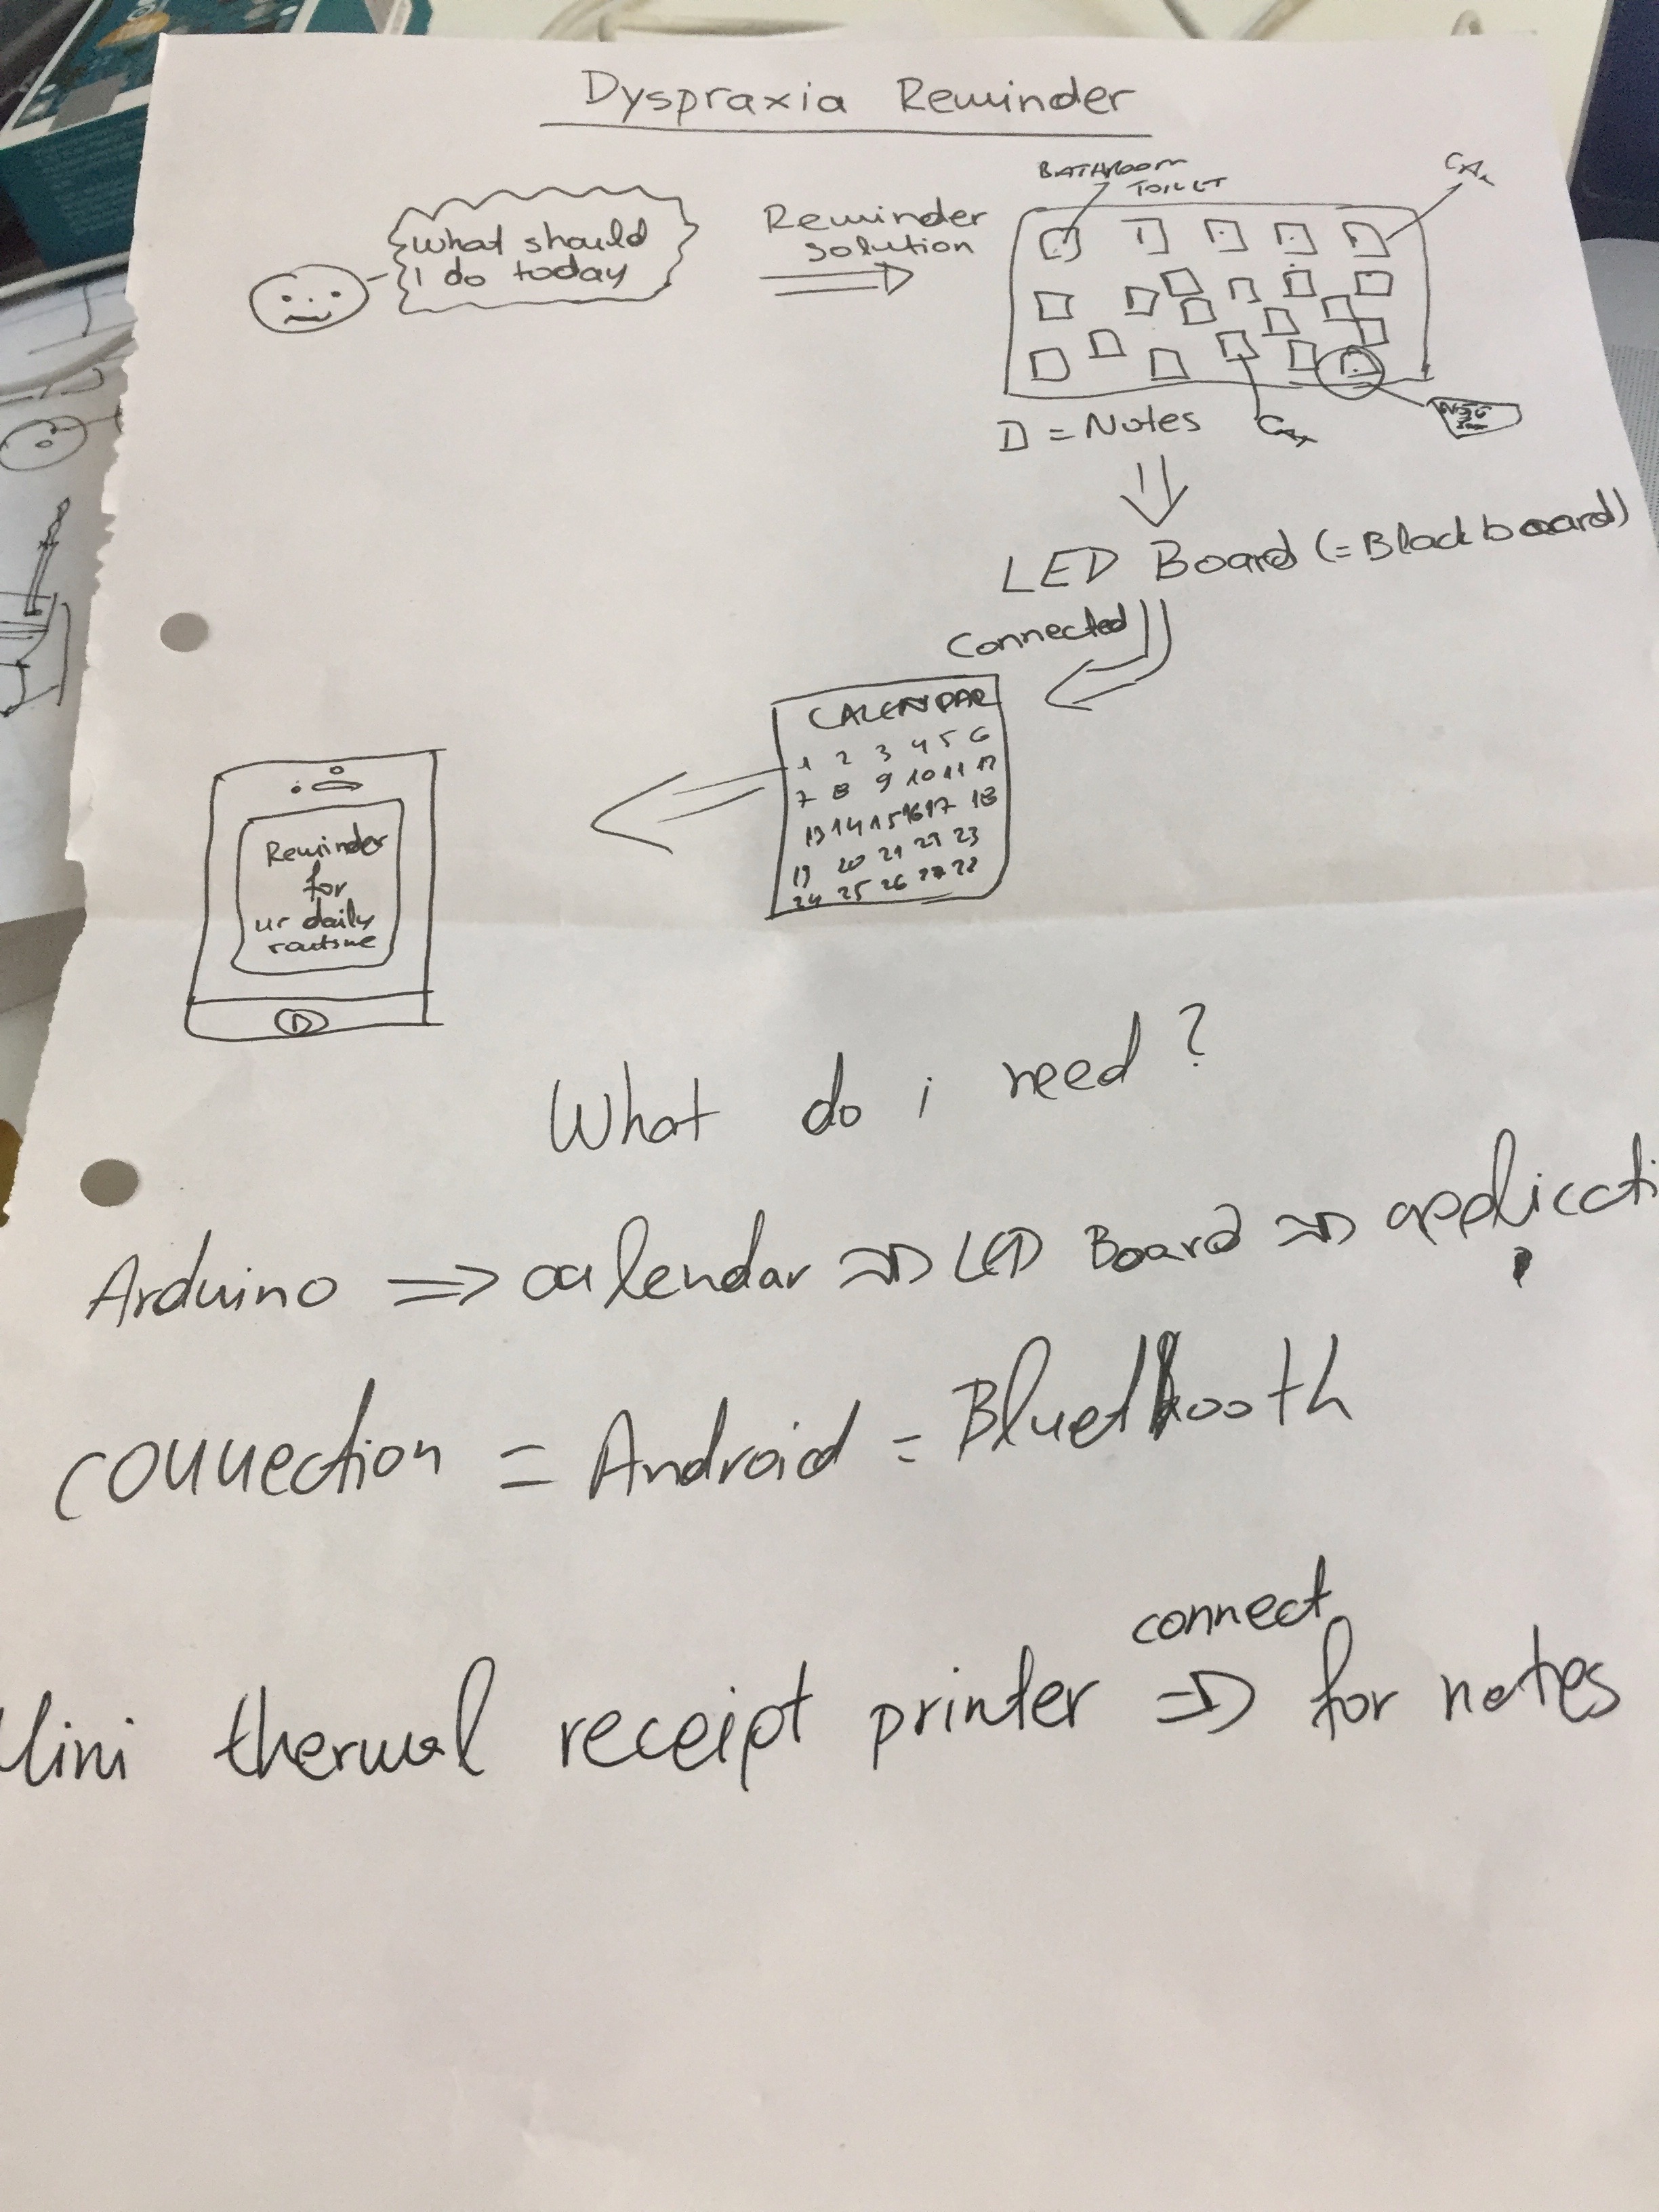 Dyspraxia Reminder
What should
I do today
Reminder
solution
BATHROOM
TOILET
D = Notes
LED Board (= Blackboard)
Connected
CALENDAR
1 2 3 4 5 6
7 8 9 10 11 12
13 14 15 16 17 18
19 20 21 22 23
24 25 26 27 28
Reminder
for
ur daily
routine
What do i need ?
Arduino => calendar => LED Board => applicati
connection = Android = Bluetooth
connect
Mini thermal receipt printer => for notes